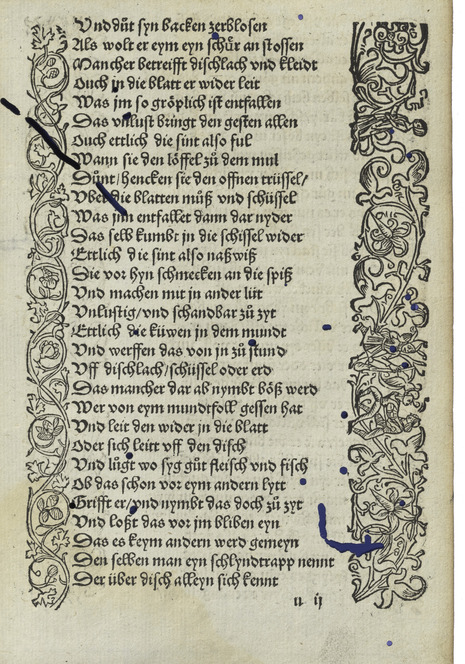 Vnd dût syn backen zerblosen
Als wolt er eym eyn schür an stossen
Mancher betrifft dischlach vnd kleidt
Ouch jn die blatt er wider leit
Was jm so gröplich ist entfallen
Das vnlust bringt den gesten allen
Ouch ettlich die sint also ful
Wann sie den löffel zů dem mul
Důnt / hencken sie den offnen trüssel /
Vber die blatten můß vnd schüssel
Was jnn entfallet dann dar nyder
Das selb kumbt jn die schissel wider
Ettlich die sint also naßwiß
Sie vor hyn schmecken an die spiß
Vnd machen mit jn ander lüt
Vnlustig / vnd schandbar zů zyt
Ettlich die küwen jn dem mundt
Vnd werffen das von jn zů stund
Vff dischlach / schüssel oder erd
Das mancher dar ab nymbt böß werd
Wer von eym mundtfoll gessen hat
Vnd leit den wider jn die blatt
Oder sich leitt vff den disch
Vnd lůgt wo syg gůt fleisch vnd fisch
Ob das schon vor eym andern lytt
Grifft er / vnd nymbt das doch zů zyt
Vnd loßt das vor jm bliben eyn
Das es keym andern werd gemeyn
Den selben man eyn schlyndtrapp nennt
Der über disch alleyn sich kennt
u ij